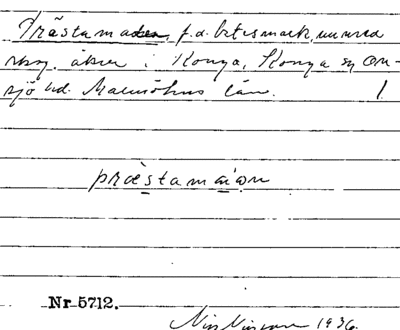 Prästamaden, f.d. betesmark, numera
åker i Konga, Konga sn On-
sjö hd. Malmöhus län. 1.
præstamaion
Nr 5712.
Nils Nilsson 1936.